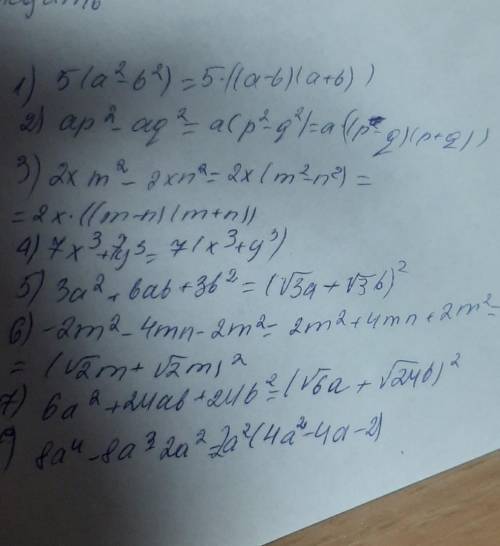 1) 5(a²-b²)=5·((a-b)(a+b))
2) ap²-aq²=a(p²-q²)=a((p-q)(p+q))
3) 2xm²-2xn²=2x(m²-n²)=
=2x·((m-n)(m+n))
4) 7x³+7y³=7(x³+y³)
5) 3a²+6ab+3b²=(√3a+√3b)²
6) -2m²-4mn-2m²=2m²+4mn+2m²=
=(√2m+√2m)²
7) 6a²+24ab+24b²=(√6a+√24b)²
8a⁴-8a³2a²=2a²(4a²-4a-2)